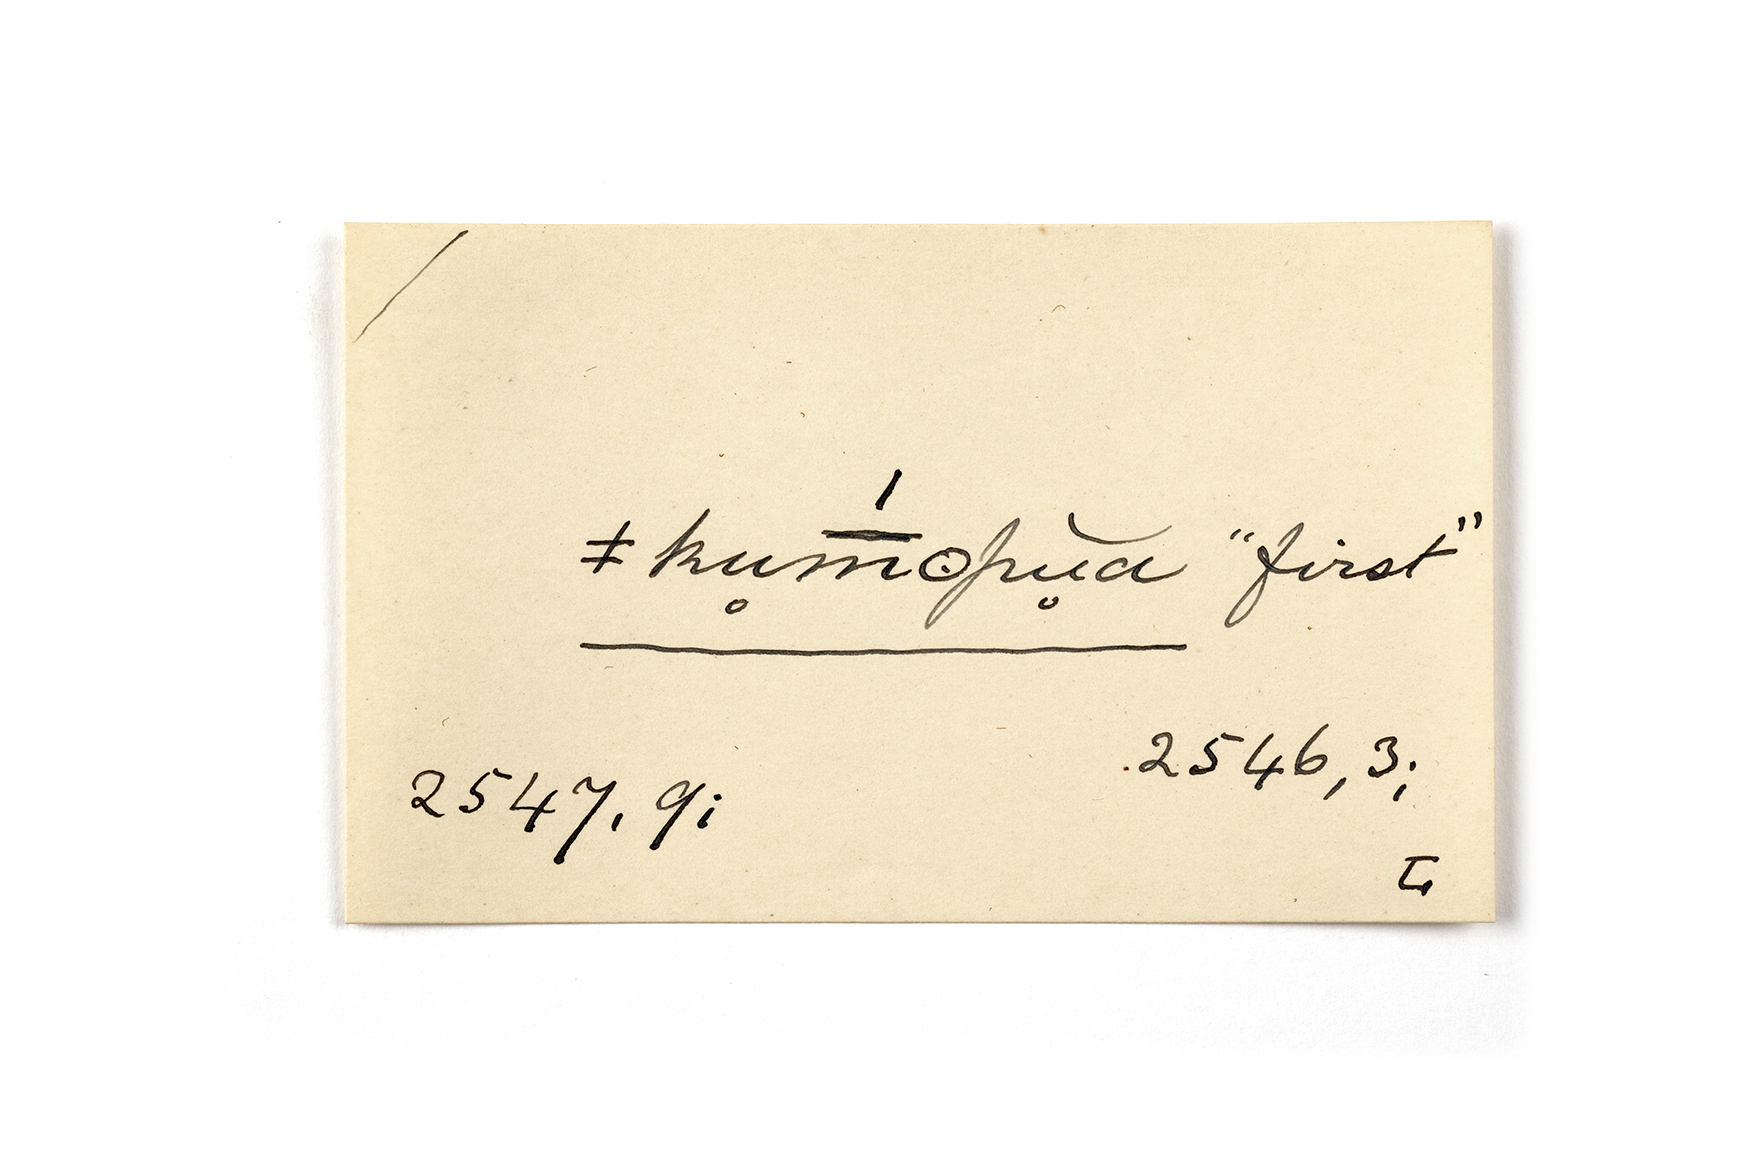 ǂku̥m̄́ʘpŭ̥a "first"
2546, 3;
2547, 9;
L